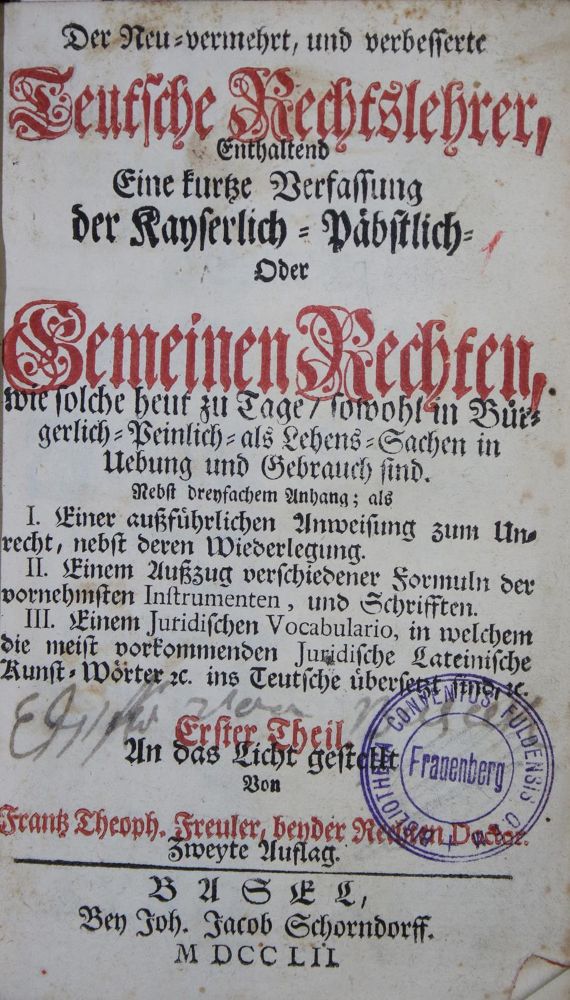 Der Neu-vermehrt, und verbesserte
Teutsche Rechtslehrer,
Enthaltend
Eine kurtze Verfassung
der Kayserlich-Päbstlich-
Oder
Gemeinen Rechten,
wie solche heut zu Tage/ sowohl in Bür-
gerlich-Peinlich-als Lehens-Sachen in
Uebung und Gebrauch sind.
Nebst dreyfachem Anhang; als
I. Einer außführlichen Anweisung zum Un-
recht, nebst deren Wiederlegung.
II. Einem Außzug verschiedener Formuln der
vornehmsten Instrumenten, und Schrifften.
III. Einem Juridischen Vocabulario, in welchem
die meist vorkommenden Juridische Lateinische
Kunst-Wörter ꝛc. ins Teutsche übersetzt sind, ꝛc.
Erster Theil
An das Licht gestellt
Von
Frantz Theoph. Freuler, beyder Rechten Doctor.
Zweyte Auflag.
BASEL,
Bey Joh. Jacob Schorndorff.
MDCCLII
BIBLIOTHECA CONVENTUS FULDENSIS O F M
Frauenberg